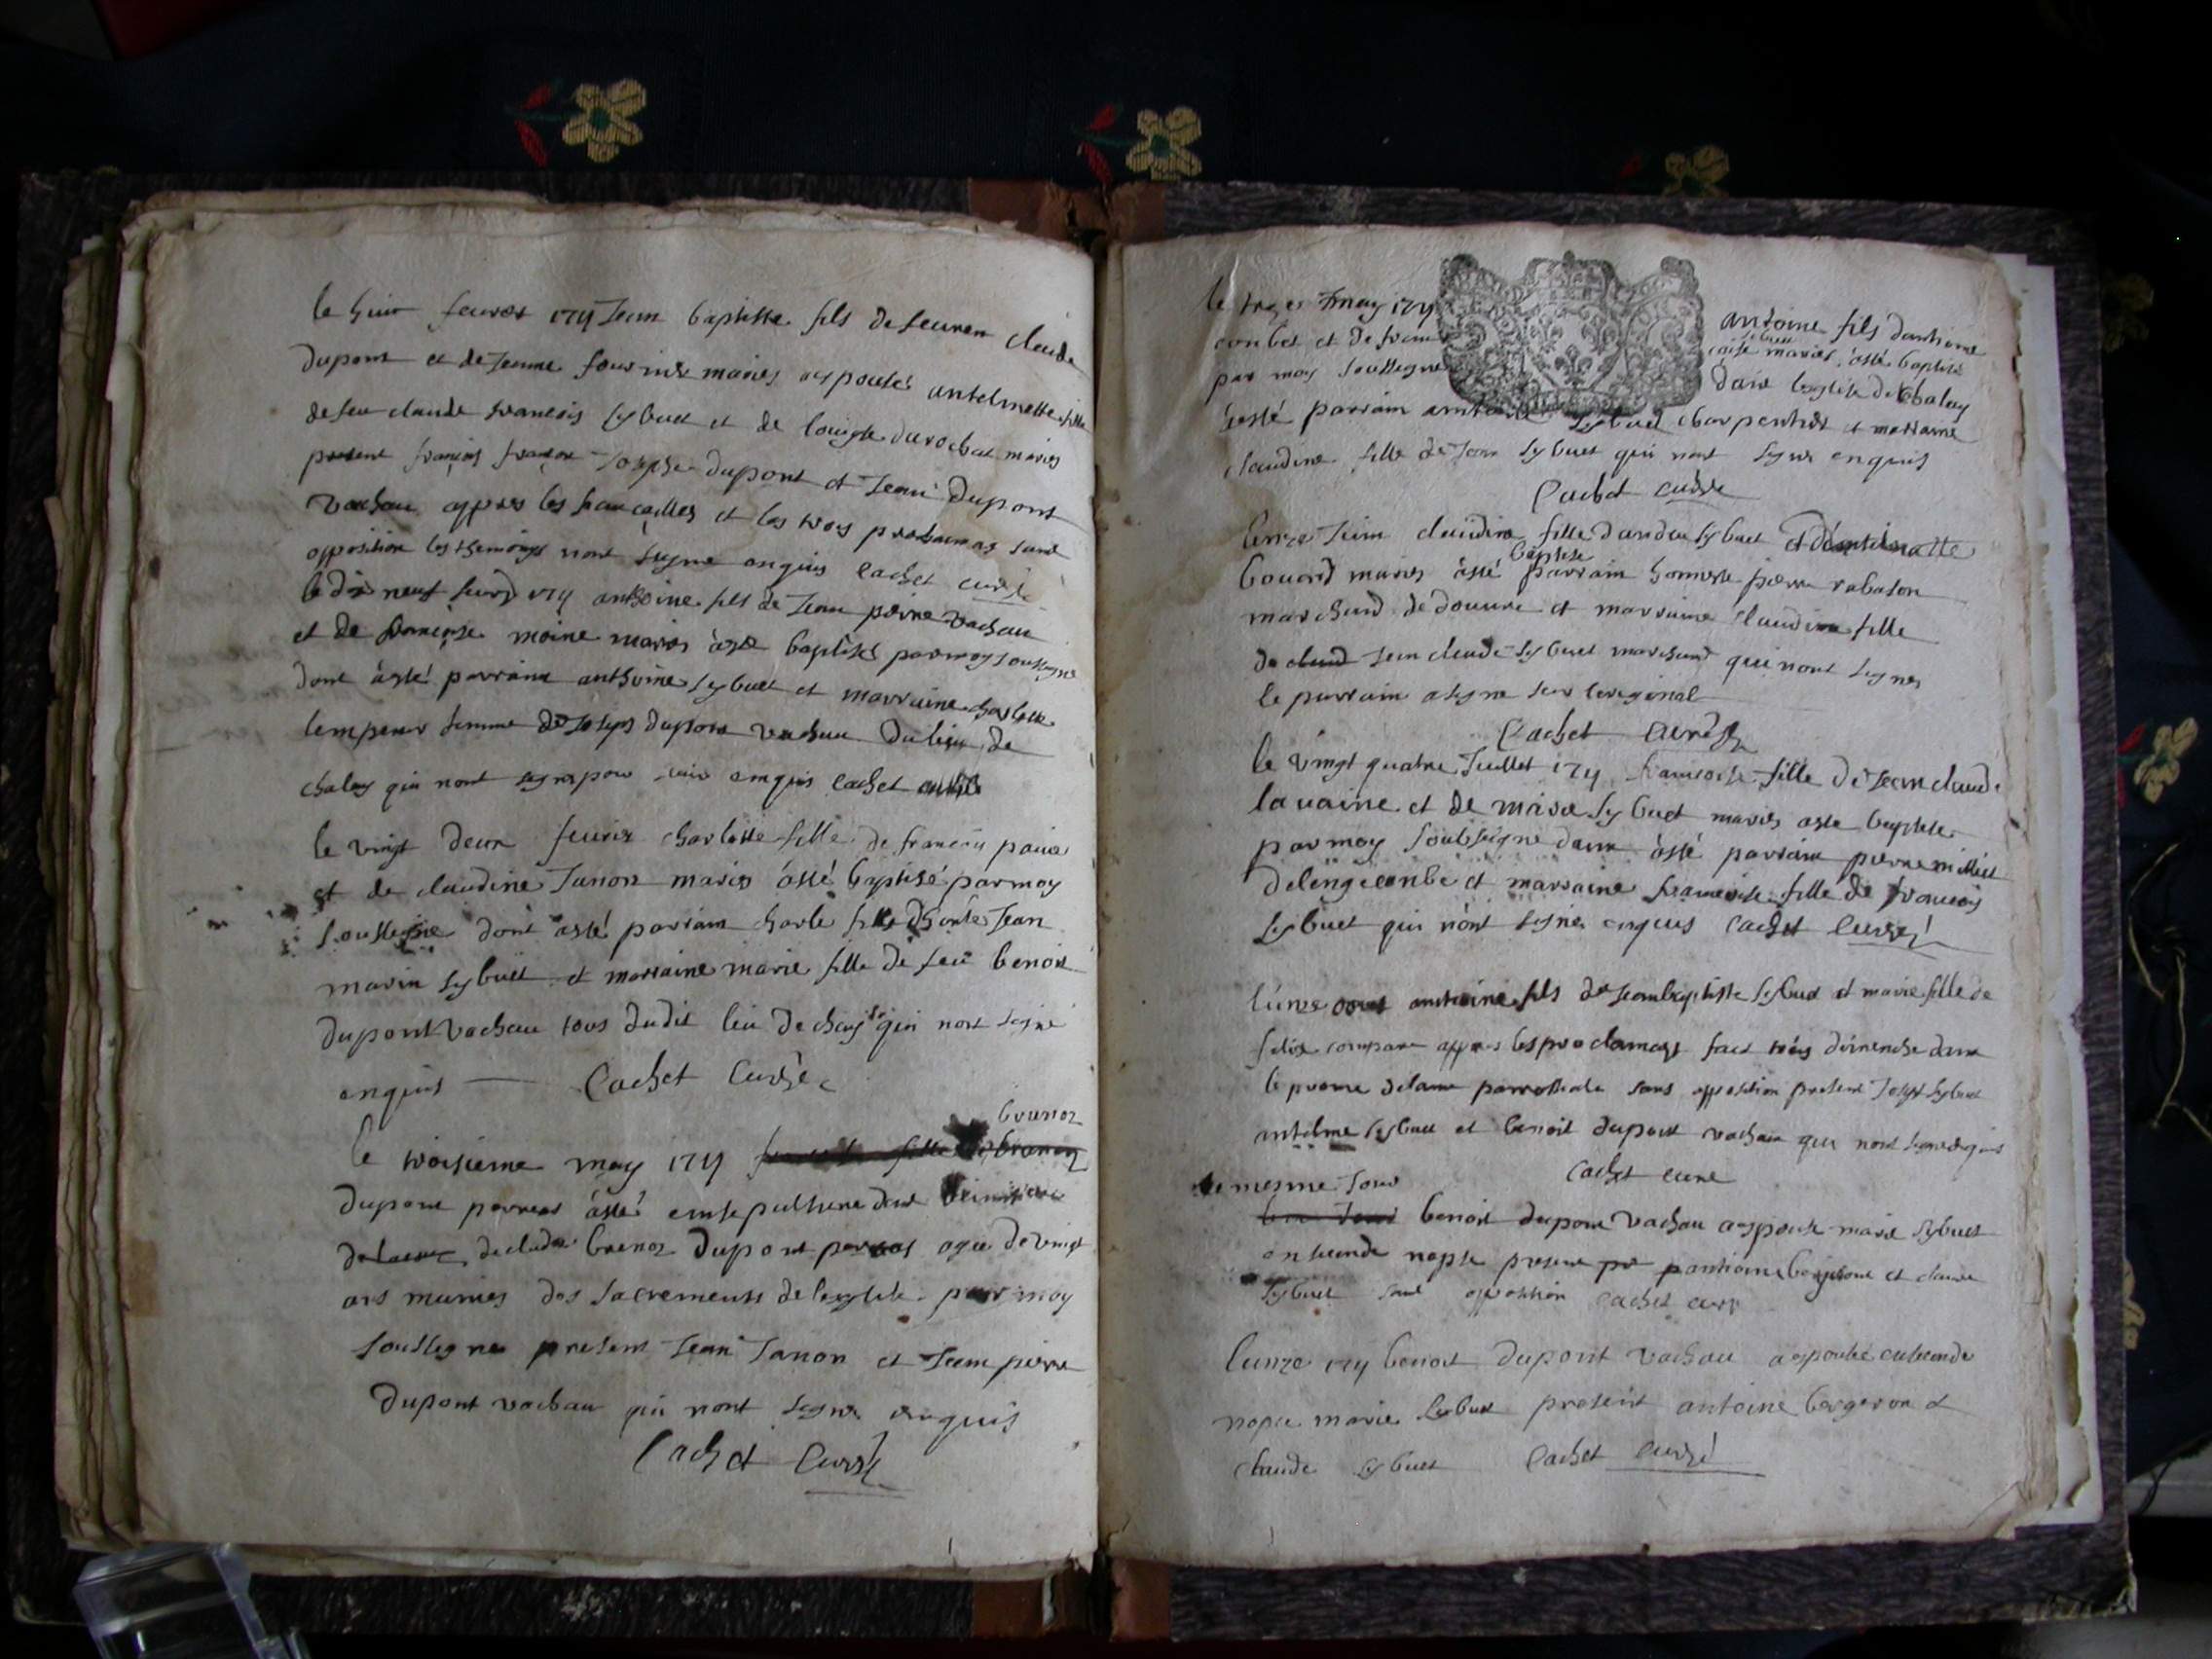 le huit feuvrer 1711 Jean baptiste fils de feu claude
dupont et de Jeanne mariés a espousée antelmette fille
de feu claude francois sybuet et de louyse darochat mariés
present françois Joseph dupont et Jean Dupont
vachau appres les fiancailles et les trois proclamas sans
opposition les themoings nont signe enquis Cachet curé
le dix neuf 1711 anthoine fils de Jean pierre vachau
et de francoise moine mariés a esté baptisés par moy soussigne
dont à esté parrain anthoine sybuet et marraine charlotte
lempereur femme de Joseph dupont vachau du lieu de
chaley qui nont signe pour enquis Cachet curé
le vingt deux feurier charlotte fille de francois
et de claudine Janon mariés à esté baptisé par moy
soussigne dont à esté parrain charle fils Jean
marin sybuet et marraine marie fille de feu benoit
dupont vachau tous dudit lieu de chaley qui nont signé
enquis Cachet Curé
brunoz
le troisieme may 1711 fille de brunoz
dupont à esté ensepulture
de claude brunoz dupont agee de vingt
ans munies des sacrements de leglise par moy
soussigne present Jean Janon et Jean pierre
dupont vachau qui nont signe enquis
Cachet Curé
le may 1711 antoine fils danthoine
conbet et de francoise sibuet mariés à esté baptisé
par moy soussigne dans leglise de Chaley
à esté parrain sybuet charpentier et marraine
claudine fille de Jean sybuet qui nont signe enquis
Cachet curé
lonze Juin claudine fille dandre sybuet et dantelmette
bouard mariés à esté baptisee parrain honneste pierre rabaton
marchand de douure et marraine claudine fille
de Jean claude sybuet marchand qui nont signes
le parrain a signe sur loriginal
Cachet Curé
le vingt quatre Juillet 1711 francoise fille de Jean claude
lauaine et de marie sybuet mariés a esté baptisée
par moy soubsigne dont à esté parrain pierre millet
delengeconbe et marraine francoise fille de francois
sybuet qui nont signe enquis Cachet Curé
lunze aout anthoine fils de Jean baptiste sybuet et marie fille de
felix appres les proclamas fact trois dimenche dans
le prosne de la messe parrochiale sans opposition present Joseph sybuet
antelme sybuet et benoit dupont vachau qui nont signe enquis
Cachet curé
le mesme Jour
benoit dupont vachau a espousé marie sybuet
en seconde nopse present anthoine et claude
sybuet sans opposition Cachet curé
lunze 1711 benoit dupont vachau a espousée en seconde
nopce marie sybuet present antoine bergeron et
claude sybuet Cachet Curé